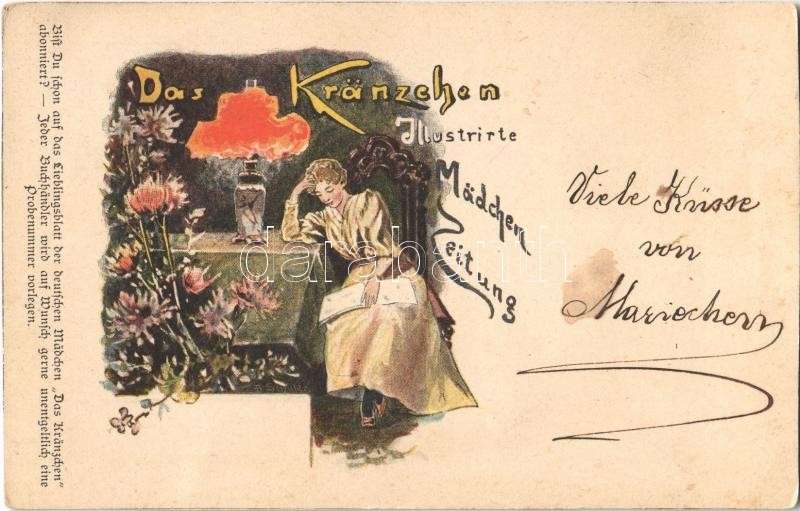 Das Kränzchen
Illustrirte
Mädchen
Zeitung
Viele Küsse
von
Mariechen
Bist Du schon auf das Lieblingsblatt der deutschen Mädchen „Das Kränzchen“
abonniert? — Jeder Buchhändler wird auf Wunsch gerne unentgeltlich eine
Probenummer vorlegen.
darabanth